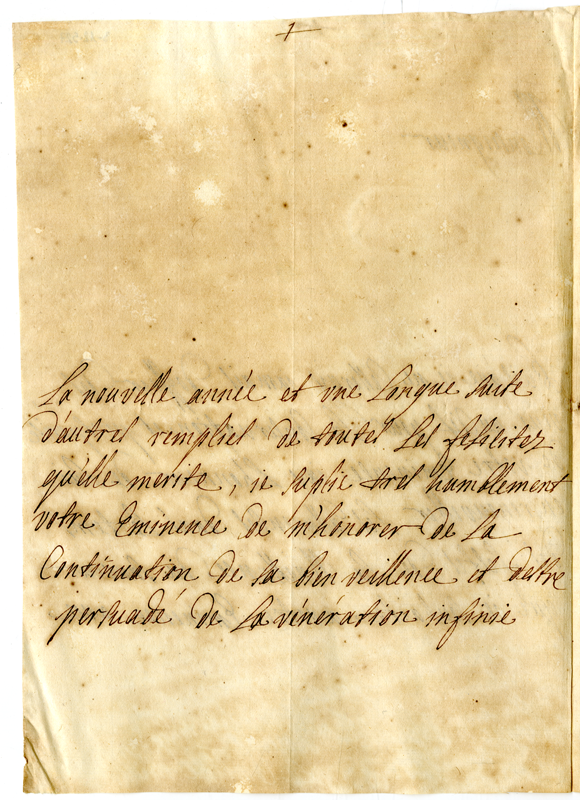 La nouvelle année et vne longue suite
d'autres remplies de toutes les felicitez
qu'elle merite, ie suplie tres humblement
votre Eminence de m'honorer de la
Continuation de sa bien veillence et destre
persuadé de la vénération infinie